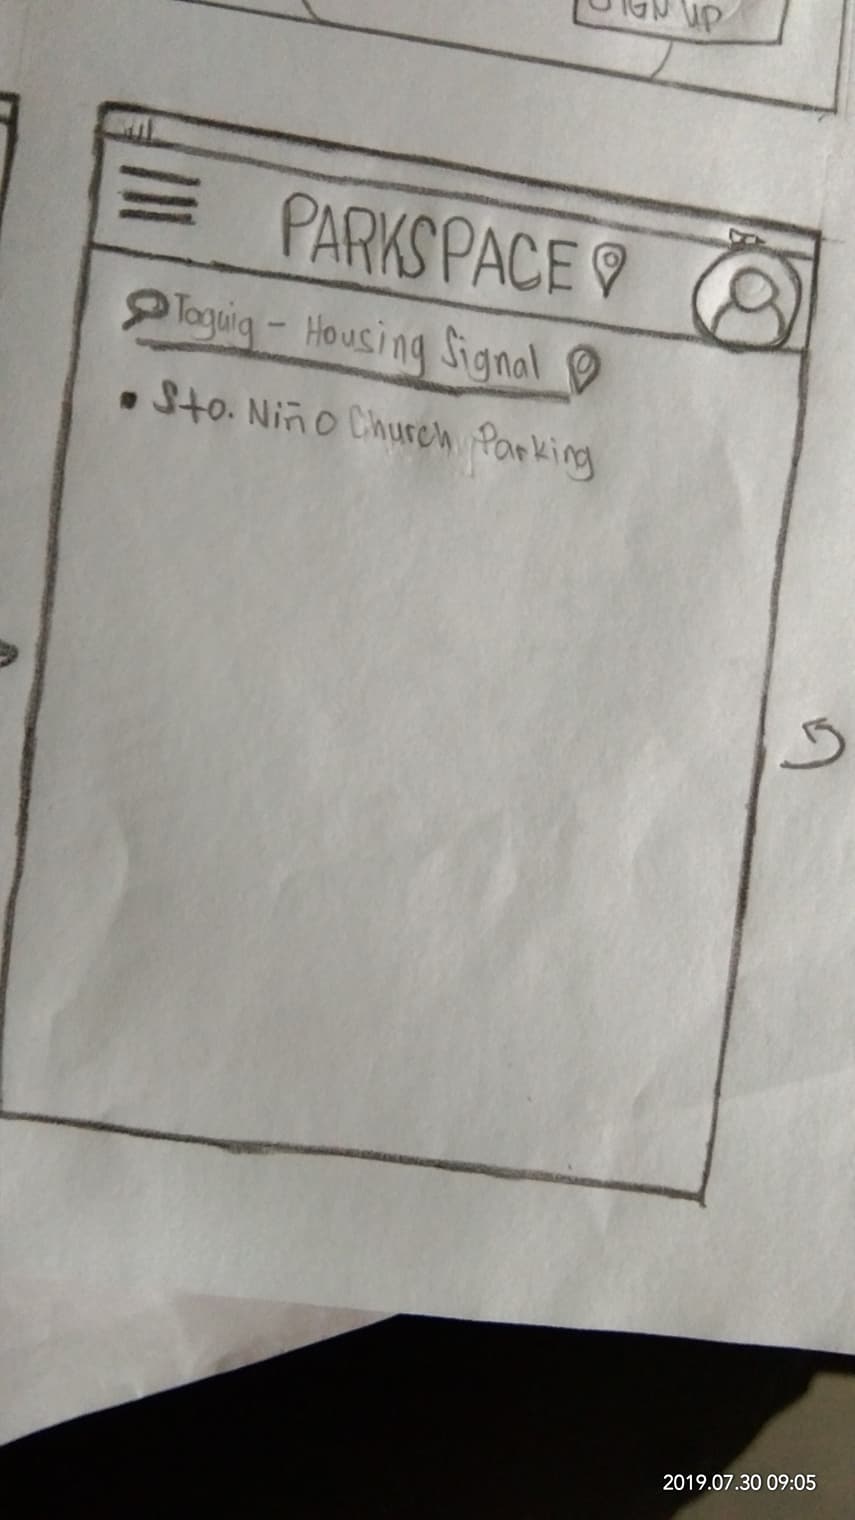 SIGN UP
PARKSPACE
Taguig - Housing Signal
• Sto. Niño Church Parking
2019.07.30 09:05